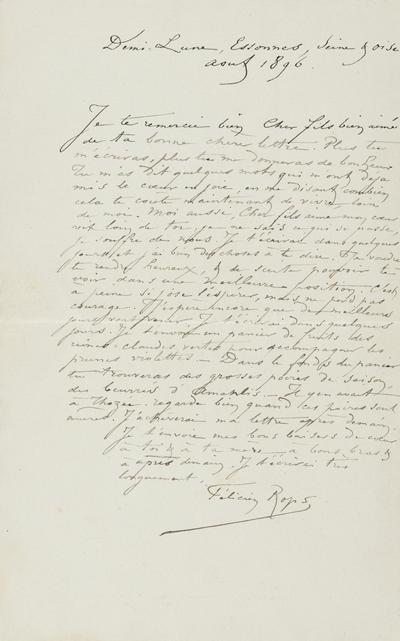 Demi-Lune, Essonnes, Seine & oise
Aout 1896.
Je te remercie bien Cher fils bien aimé
de ta bonne chere lettre. Plus tu
m'écriras, plus tu me donneras de bonheur
Tu m'as dit quelques mots qui m'ont deja
mis le cœur en joie, en me disant combien
cela te coute maintenant de vivre loin
de moi. Moi aussi, Cher fils aimé mon cœur
vit loin de toi je ne sais ce qui se passe,
je souffre de nous. Je t'écrirai dans quelques
jours et j'ai bien des choses à te dire. Je voudrais
te rendre heureux, & de suite pouvoir te
voir dans une meilleure position. C'est
à peine si j'ose l'espérer, mais ne perd pas
courage. J'espere encore que de meilleurs
jours vont venir. Je t'écrirai dans quelques
jours. Je t'envoie un panier de fruits des
reines-claudes vertes pour accompagner les
prunes violettes — Dans le fond du panier
tu trouveras des grosses poires de saison,
des beurrés d'Amanlis — Il y en avait
à Thozée. regarde bien quand ces poires sont
mures. J'acheverai ma lettre apres demain.
Je t'envoie mes bons baisers de cœur
à toi & à ta mere — à bons bras &
à après demain. Je t'écrirai très
longuement,
Félicien Rops